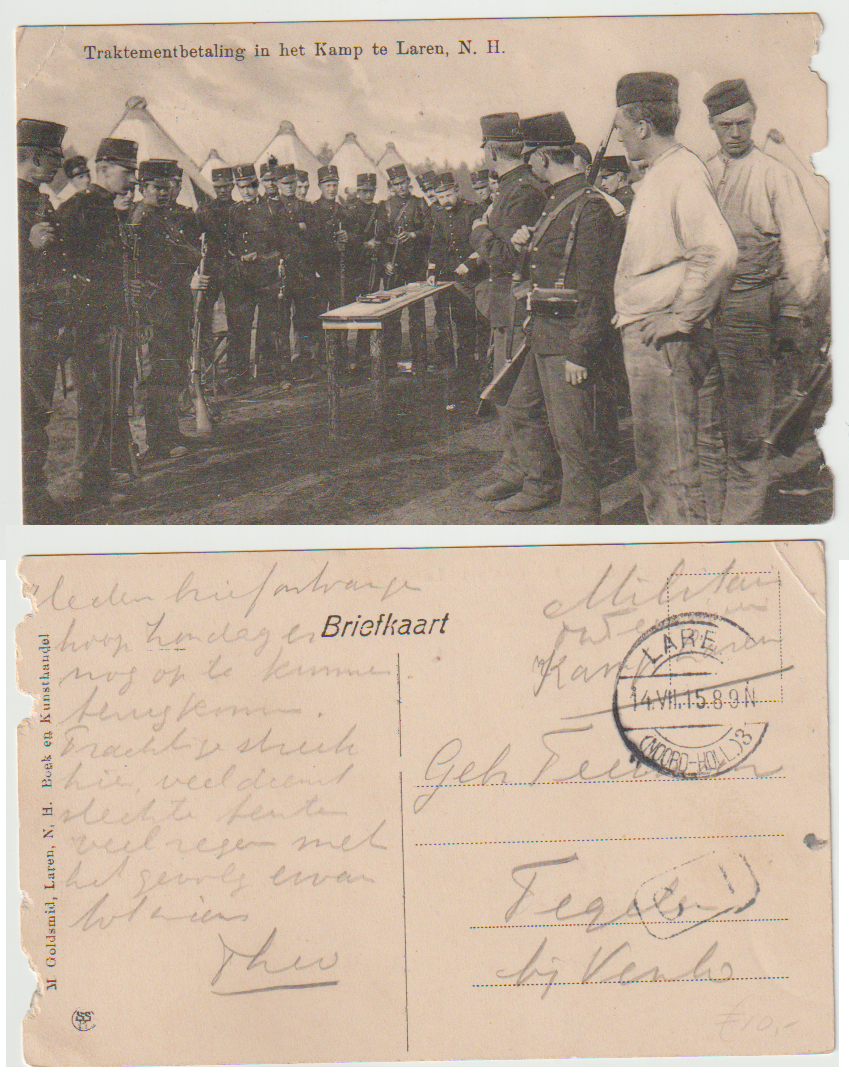 Traktementbetaling in het Kamp te Laren, N. H.
Briefkaart
M. Goldsmid, Laren, N. H. Boek en Kunsthandel
hoop
nog op te kunnen
terugkomen.
Prachtige streek
hier, veel dienst
slechte tenten
veel regen met
het gevolg ervan
Theo
Militair
Kamp Laren
LARE
14.VII.15.8-9N
(NOORD-HOLL.)3
Gebr
Tegelen
bij Venlo
€10,-